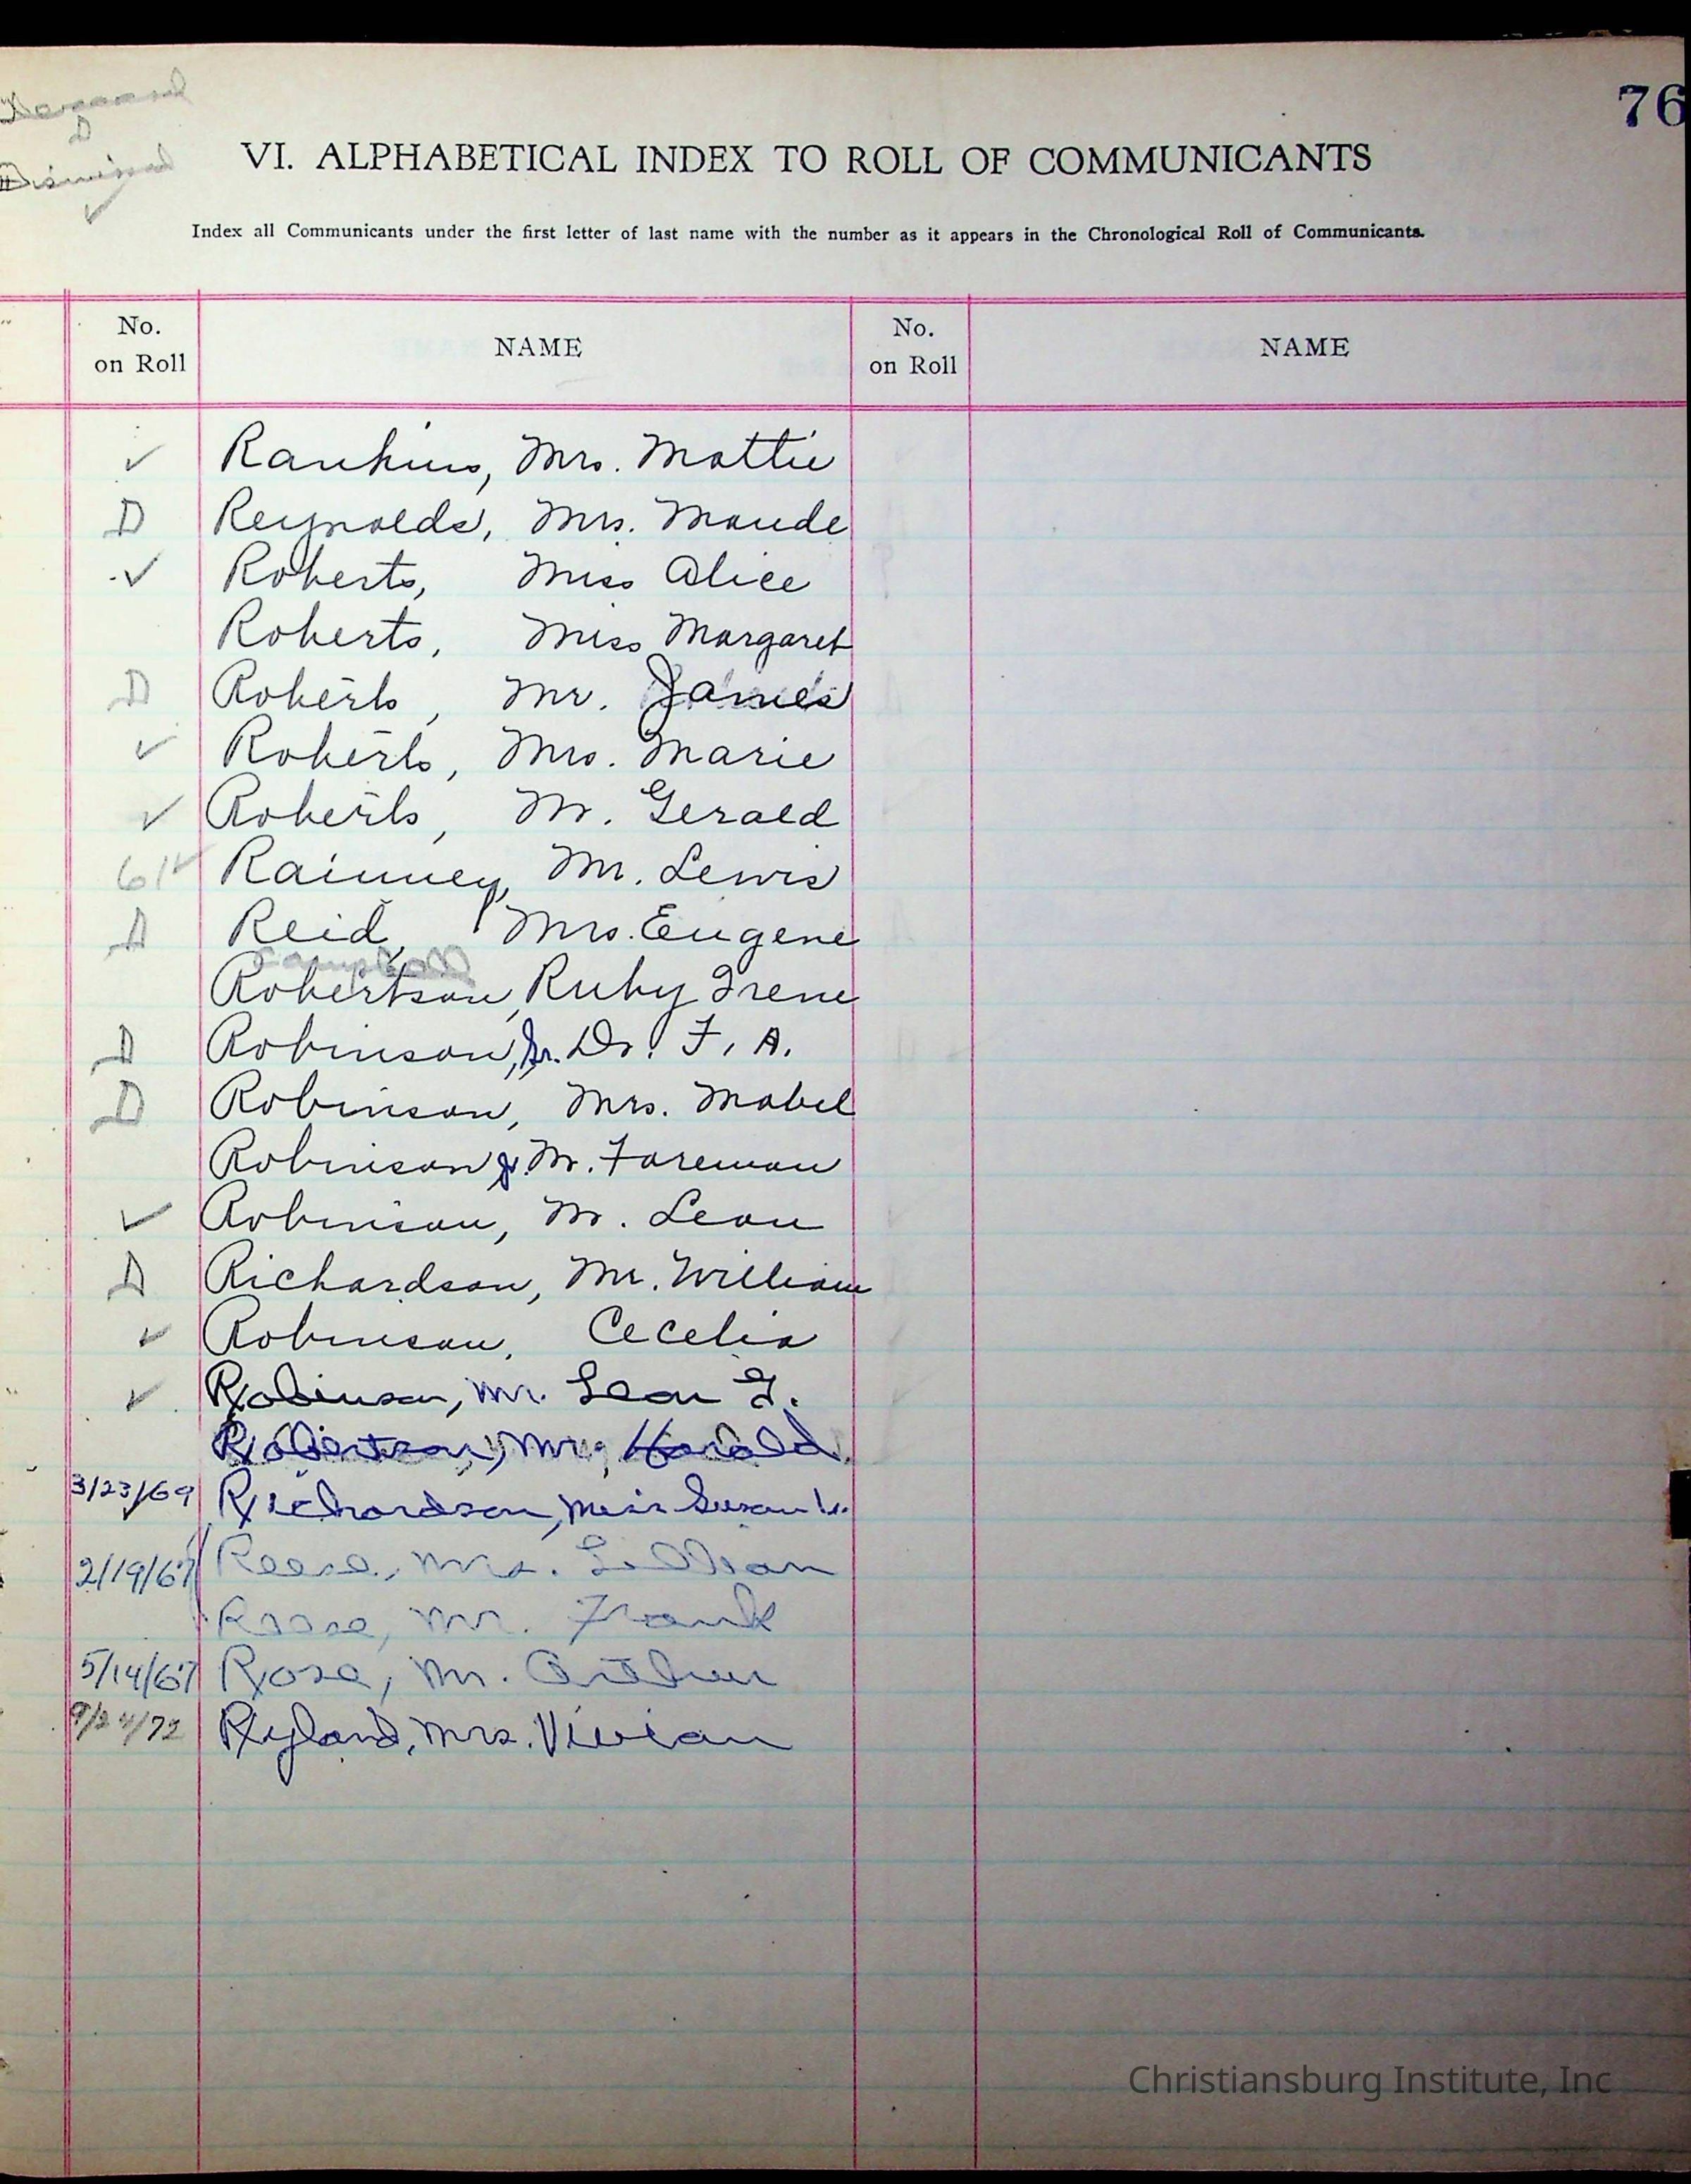 76
Deceased
D
Dismissed
✓
VI. ALPHABETICAL INDEX TO ROLL OF COMMUNICANTS
Index all Communicants under the first letter of last name with the number as it appears in the Chronological Roll of Communicants.
No. on Roll NAME No. on Roll NAME
✓ Rankins, Mrs. Mattie
D Reynolds, Mrs. Maude
✓ Roberts, Miss Alice
Roberts, Miss Margaret
D Roberts, Mr. James
✓ Roberts, Mrs. Marie
✓ Roberts, Mr. Gerald
61✓ Rainney, Mr. Lewis
D Reid, Mrs. Eugene
Campbell
Robertson, Ruby Irene
D Robinson, Sr. Dr. F. A.
D Robinson, Mrs. Mabel
Robinson Jr. Mr. Foreman
✓ Robinson, Mr. Leon
D Richardson, Mr. William
✓ Robinson, Cecelia
✓ Robinson, Mr. Leon F.
Robertson, Mr. Harold
3/23/69 Richardson, Miss Susan
2/19/67 Reese, Mrs. Lillian
Reese, Mr. Frank
5/14/67 Rose, Mr. Arthur
9/24/72 Ryland, Mrs. Vivian
Christiansburg Institute, Inc